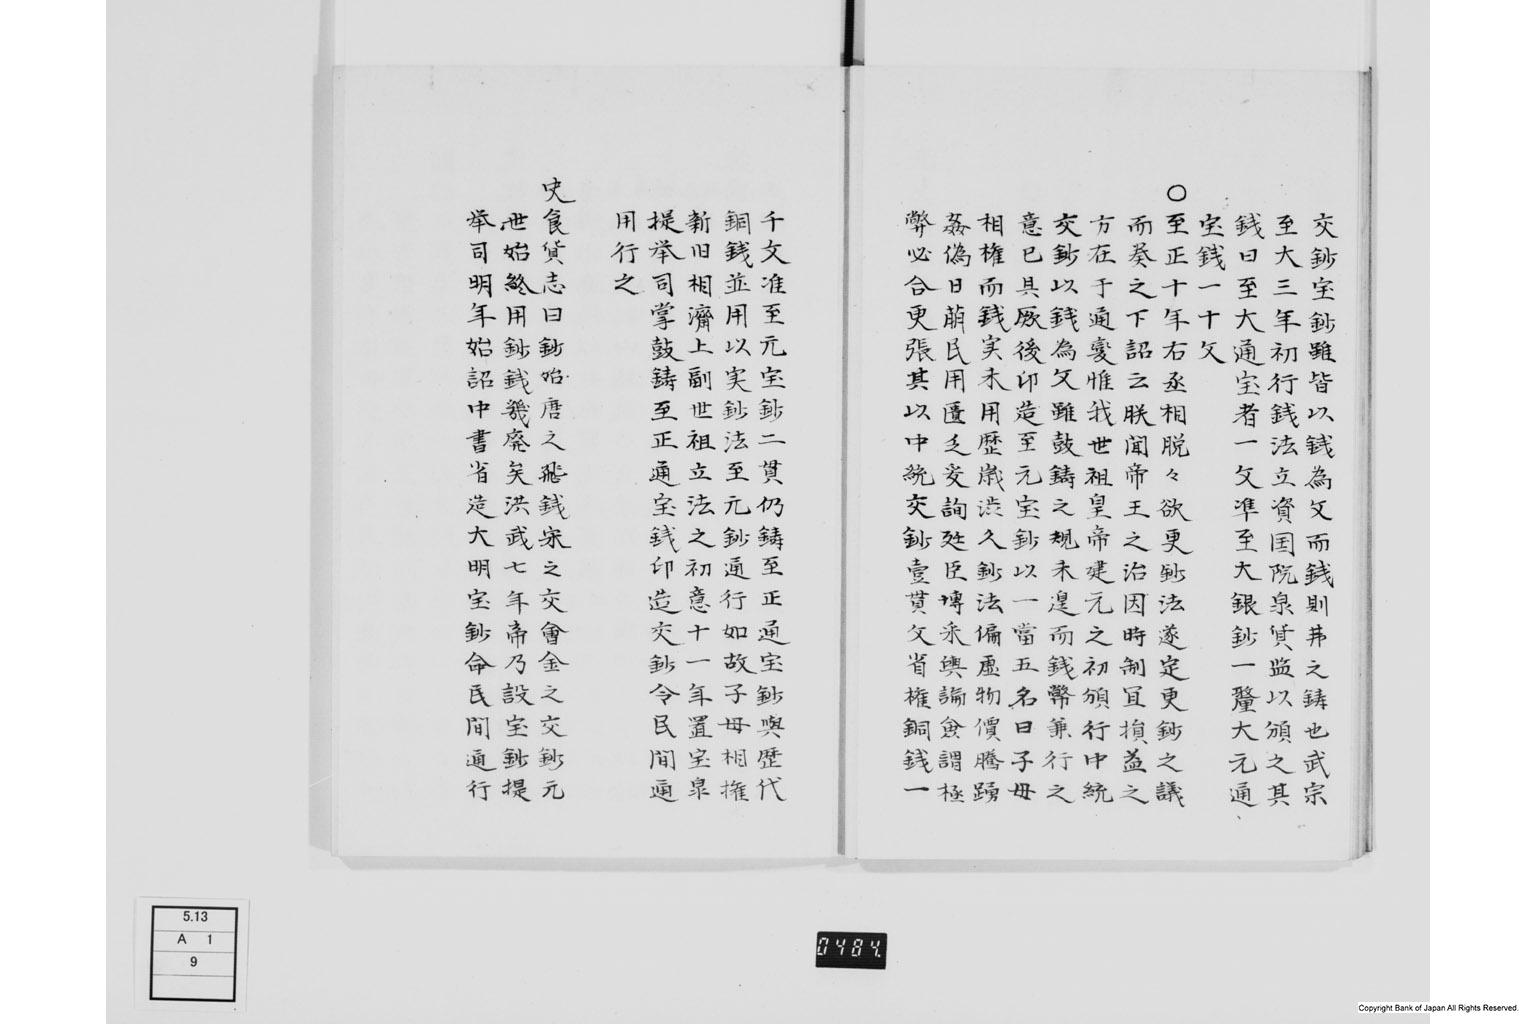 交鈔宝鈔雖皆以銭為文而銭則弗之鋳也武宗
至大三年初行銭法立資国院泉貨監以頒之其
銭曰至大通宝者一文準至大銀鈔一釐大元通
宝銭一十文
○至正十年右丞相脱々欲更鈔法遂定更鈔之議
而奏之下詔云朕聞帝王之治因時制宜損益之
方在于通変惟我世祖皇帝建元之初頒行中統
交鈔以銭為文雖鼓鋳之規未遑而銭幣兼行之
意已具厥後印造至元宝鈔以一当五名曰子母
相権而銭実未用歴歳滋久鈔法偏虚物價騰踴
姦偽日萠民用匱乏爰詢廷臣博采輿論僉謂極
弊必合更張其以中統交鈔壹貫文省権銅銭一
千文准至元宝鈔二貫仍鋳至正通宝鈔與歴代
銅銭並用以実鈔法至元鈔通行如故子母相権
新旧相濟上副世祖立法之初意十一年置宝泉
提挙司掌鼓鋳至正通宝銭印造交鈔令民間通
用行之
史食貨志曰鈔始唐之飛銭宋之交會金之交鈔元
世始終用鈔銭幾廃矣洪武七年帝乃設宝鈔提
挙司明年始詔中書省造大明宝鈔命民間通行
5.13
A 1
9
0484
Copyright Bank of Japan All Rights Reserved.